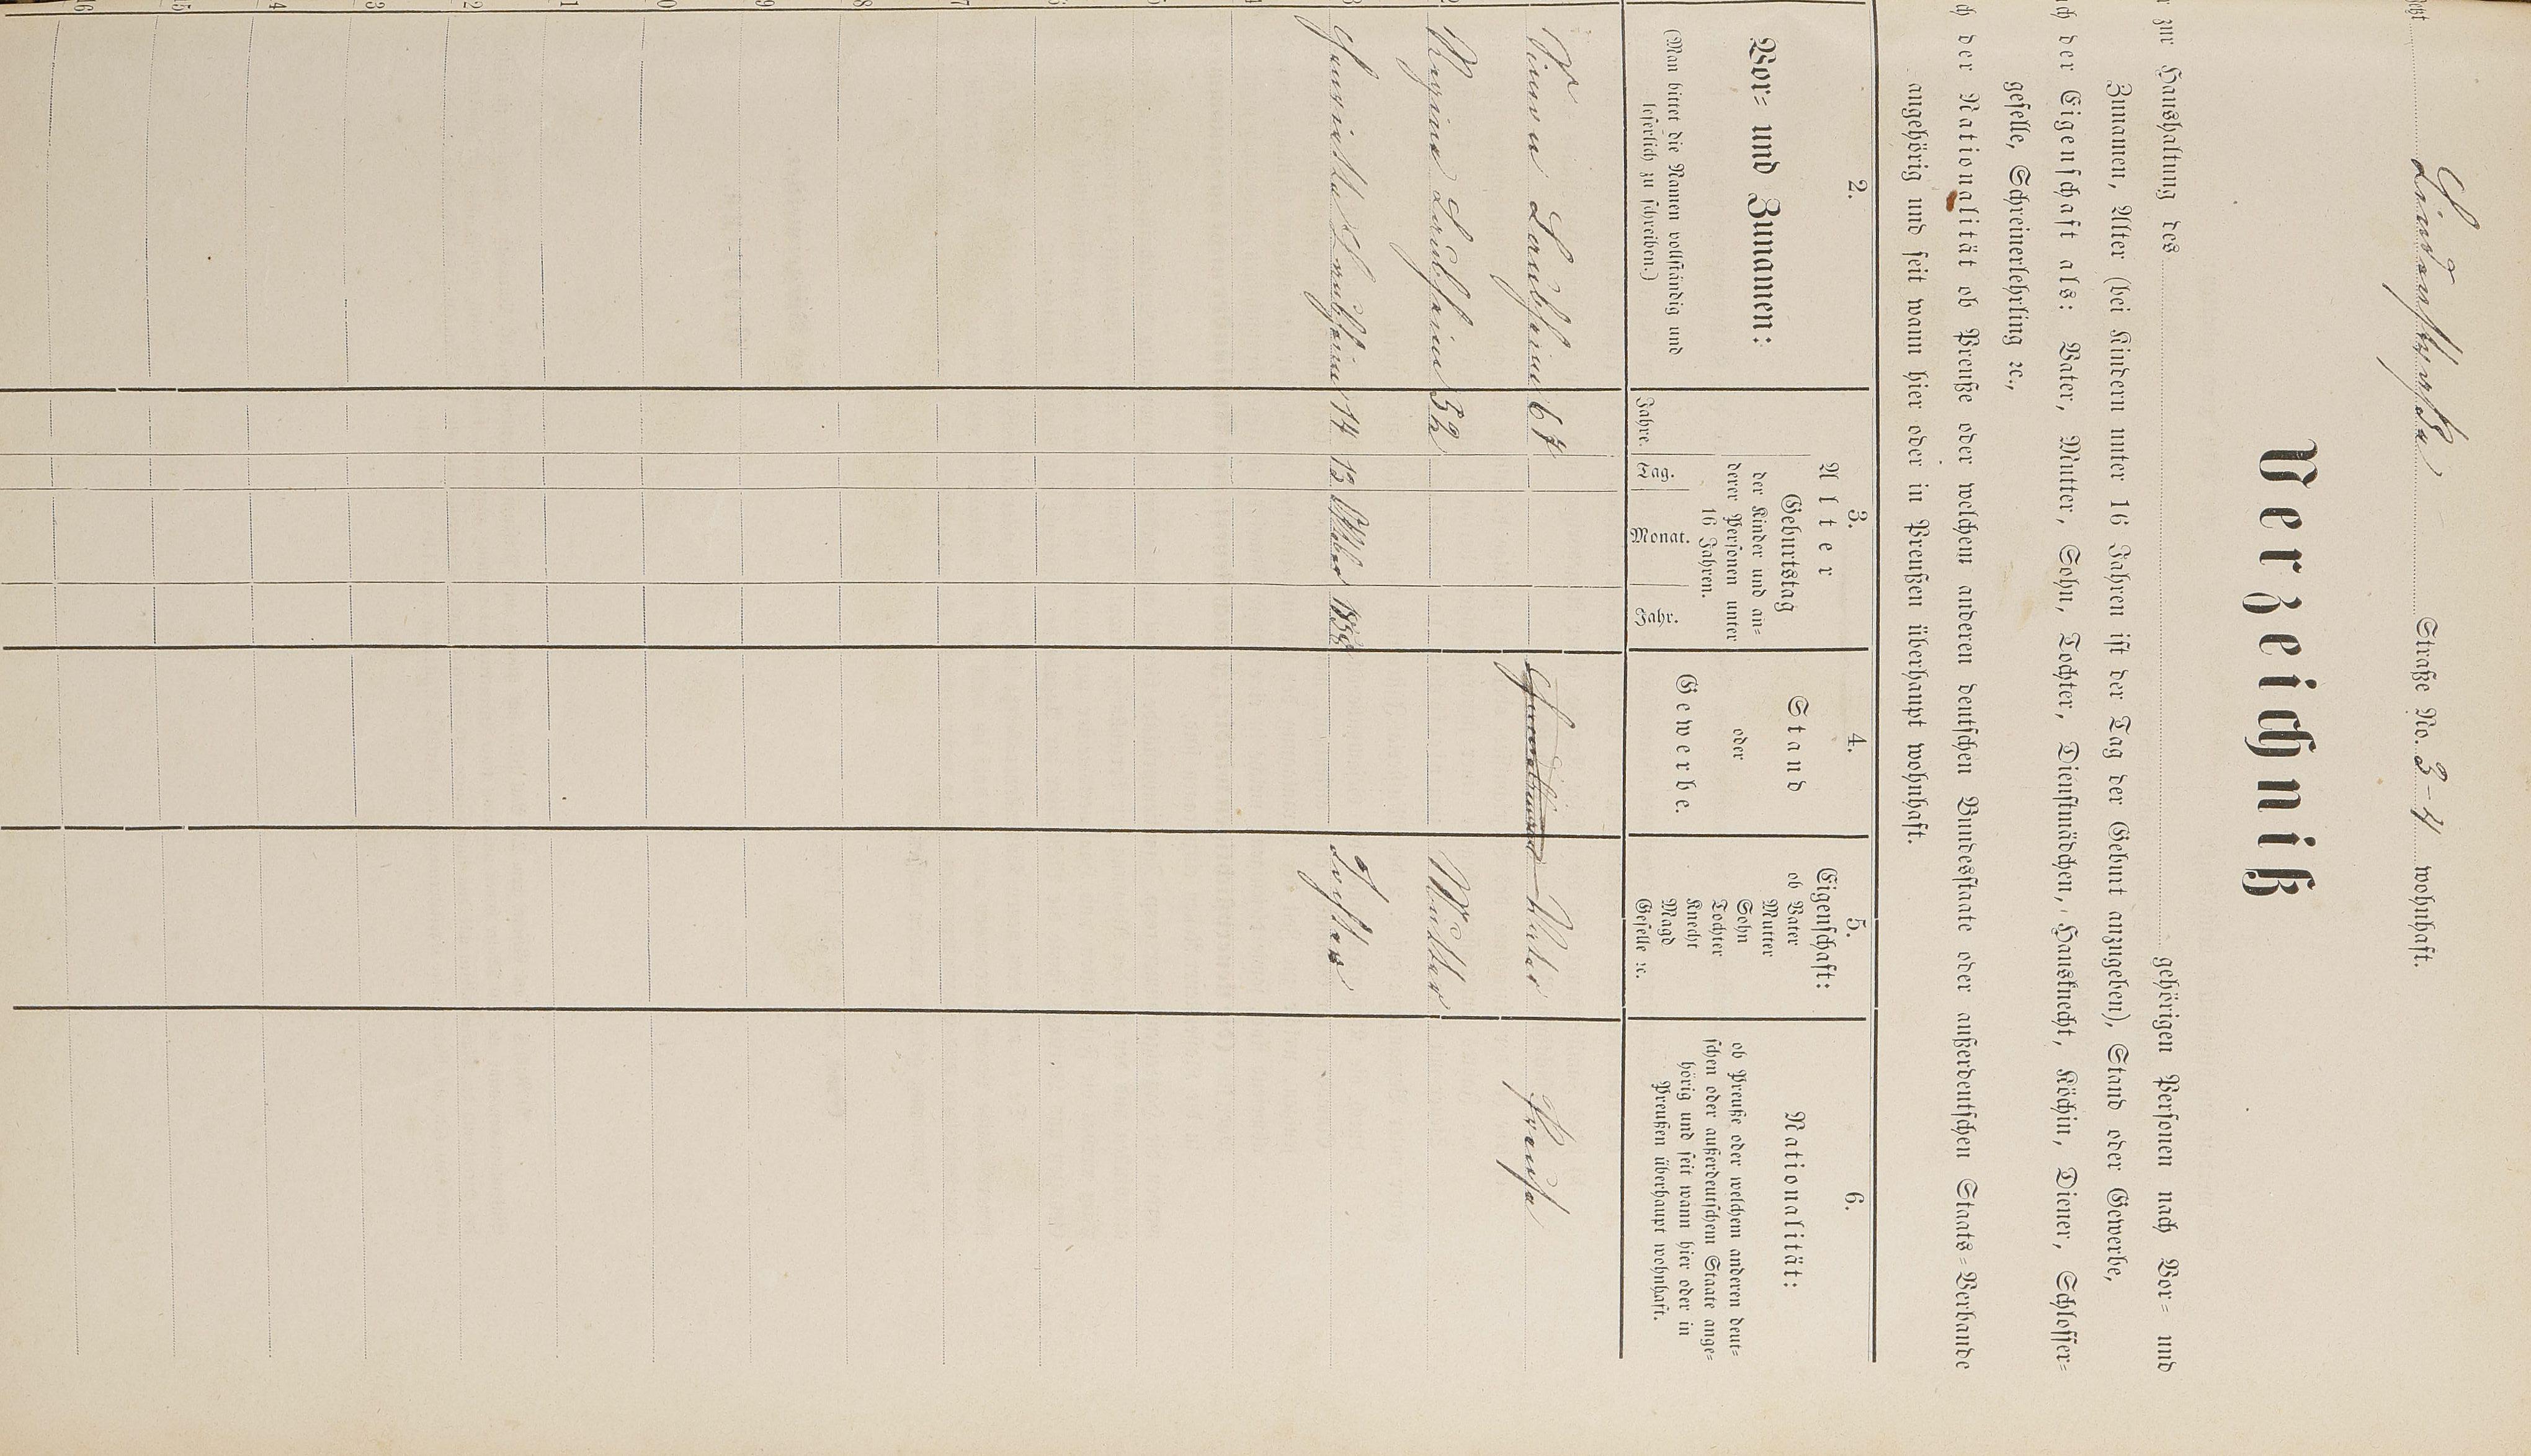 Jetzt Straße No. 3-4 wohnhaft.
Verzeichniß
r zur Haushaltung des gehörigen Personen nach Vor= und
Zunamen, Alter (bei Kindern unter 16 Jahren ist der Tag der Geburt anzugeben), Stand oder Gewerbe,
ch der Eigenschaft als: Vater, Mutter, Sohn, Tochter, Dienstmädchen, Hausknecht, Köchin, Diener, Schlosser=
geselle, Schreinerlehrling ꝛc.,
ch der Nationalität ob Preuße oder welchem anderen deutschen Bundesstaate oder außerdeutschen Staats=Verbande
angehörig und seit wann hier oder in Preußen überhaupt wohnhaft.
2.
Vor= und Zunamen:
(Man bittet die Namen vollständig und
leserlich zu schreiben.)
3.
Alter
Geburtstag
der Kinder und an=
derer Personen unter
16 Jahren.
Jahre. Tag. Monat. Jahr.
4.
Stand
oder
Gewerbe.
5.
Eigenschaft:
ob Vater
Mutter
Sohn
Tochter
Knecht
Magd
Geselle ꝛc.
6.
Nationalität:
ob Preuße oder welchen anderen deut=
schen oder außerdeutschem Staate ange=
hörig und seit wann hier oder in
Preußen überhaupt wohnhaft.
Laubheim 67 Vater Preuße
2 Regina Laubheim 52 Mutter
3 Henriette Laubheim 14 13 Oktober Tochter
4
5
6
7
8
9
10
11
12
13
14
15
16